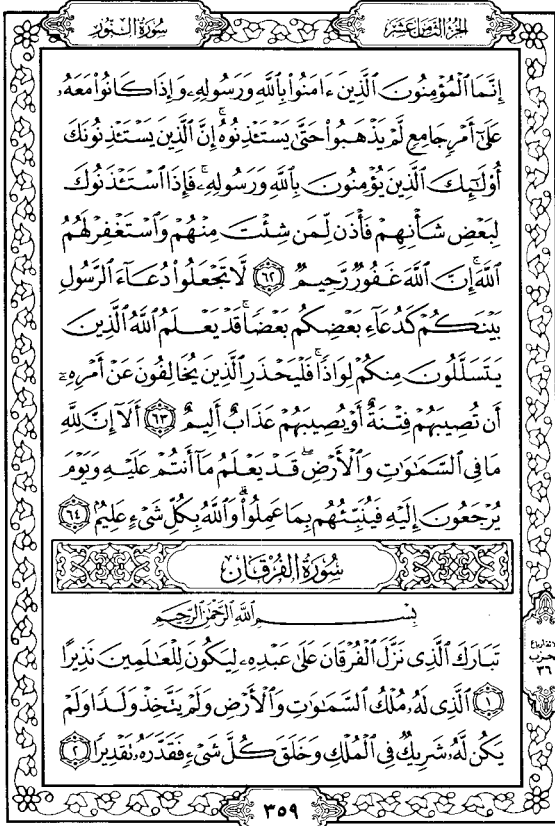 سُورَةُ النُّورِ
الجُزْءُ الثَّامِنَ عَشَرَ
إِنَّمَا ٱلْمُؤْمِنُونَ ٱلَّذِينَ ءَامَنُوا۟ بِٱللَّهِ وَرَسُولِهِۦ وَإِذَا كَانُوا۟ مَعَهُۥ
عَلَىٰٓ أَمْرٍ جَامِعٍ لَّمْ يَذْهَبُوا۟ حَتَّىٰ يَسْتَـْٔذِنُوهُ ۚ إِنَّ ٱلَّذِينَ يَسْتَـْٔذِنُونَكَ
أُو۟لَـٰٓئِكَ ٱلَّذِينَ يُؤْمِنُونَ بِٱللَّهِ وَرَسُولِهِۦ ۚ فَإِذَا ٱسْتَـْٔذَنُوكَ
لِبَعْضِ شَأْنِهِمْ فَأْذَن لِّمَن شِئْتَ مِنْهُمْ وَٱسْتَغْفِرْ لَهُمُ
ٱللَّهَ ۚ إِنَّ ٱللَّهَ غَفُورٌ رَّحِيمٌ ٦٢ لَّا تَجْعَلُوا۟ دُعَآءَ ٱلرَّسُولِ
بَيْنَكُمْ كَدُعَآءِ بَعْضِكُم بَعْضًا ۚ قَدْ يَعْلَمُ ٱللَّهُ ٱلَّذِينَ
يَتَسَلَّلُونَ مِنكُمْ لِوَاذًا ۚ فَلْيَحْذَرِ ٱلَّذِينَ يُخَالِفُونَ عَنْ أَمْرِهِۦٓ
أَن تُصِيبَهُمْ فِتْنَةٌ أَوْ يُصِيبَهُمْ عَذَابٌ أَلِيمٌ ٦٣ أَلَآ إِنَّ لِلَّهِ
مَا فِى ٱلسَّمَـٰوَٰتِ وَٱلْأَرْضِ ۖ قَدْ يَعْلَمُ مَآ أَنتُمْ عَلَيْهِ وَيَوْمَ
يُرْجَعُونَ إِلَيْهِ فَيُنَبِّئُهُم بِمَا عَمِلُوا۟ ۗ وَٱللَّهُ بِكُلِّ شَىْءٍ عَلِيمٌۢ ٦٤
سُورَةُ الْفُرْقَانِ
بِسْمِ ٱللَّهِ ٱلرَّحْمَـٰنِ ٱلرَّحِيمِ
تَبَارَكَ ٱلَّذِى نَزَّلَ ٱلْفُرْقَانَ عَلَىٰ عَبْدِهِۦ لِيَكُونَ لِلْعَـٰلَمِينَ نَذِيرًا
١ ٱلَّذِى لَهُۥ مُلْكُ ٱلسَّمَـٰوَٰتِ وَٱلْأَرْضِ وَلَمْ يَتَّخِذْ وَلَدًا وَلَمْ
يَكُن لَّهُۥ شَرِيكٌ فِى ٱلْمُلْكِ وَخَلَقَ كُلَّ شَىْءٍ فَقَدَّرَهُۥ تَقْدِيرًا ٢
الحزب
٣٦
٣٥٩